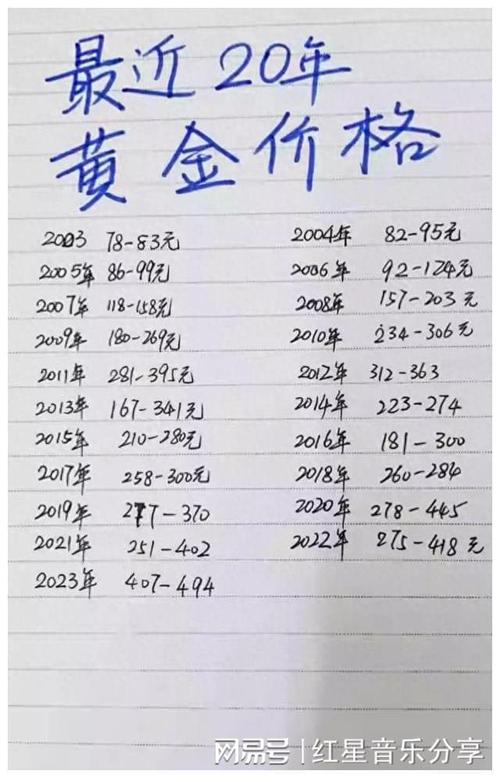 最近20年
黄金价格
2003 78-83元 2004年 82-95元
2005年 86-99元 2006年 92-124元
2007年 118-158元 2008年 157-203元
2009年 180-269元 2010年 234-306元
2011年 281-395元 2012年 312-363
2013年 167-341元 2014年 223-274
2015年 210-280元 2016年 181-300
2017年 258-300元 2018年 260-284
2019年 277-370 2020年 278-445
2021年 251-402 2022年 275-418元
2023年 407-494
网易号 | 红星音乐分享